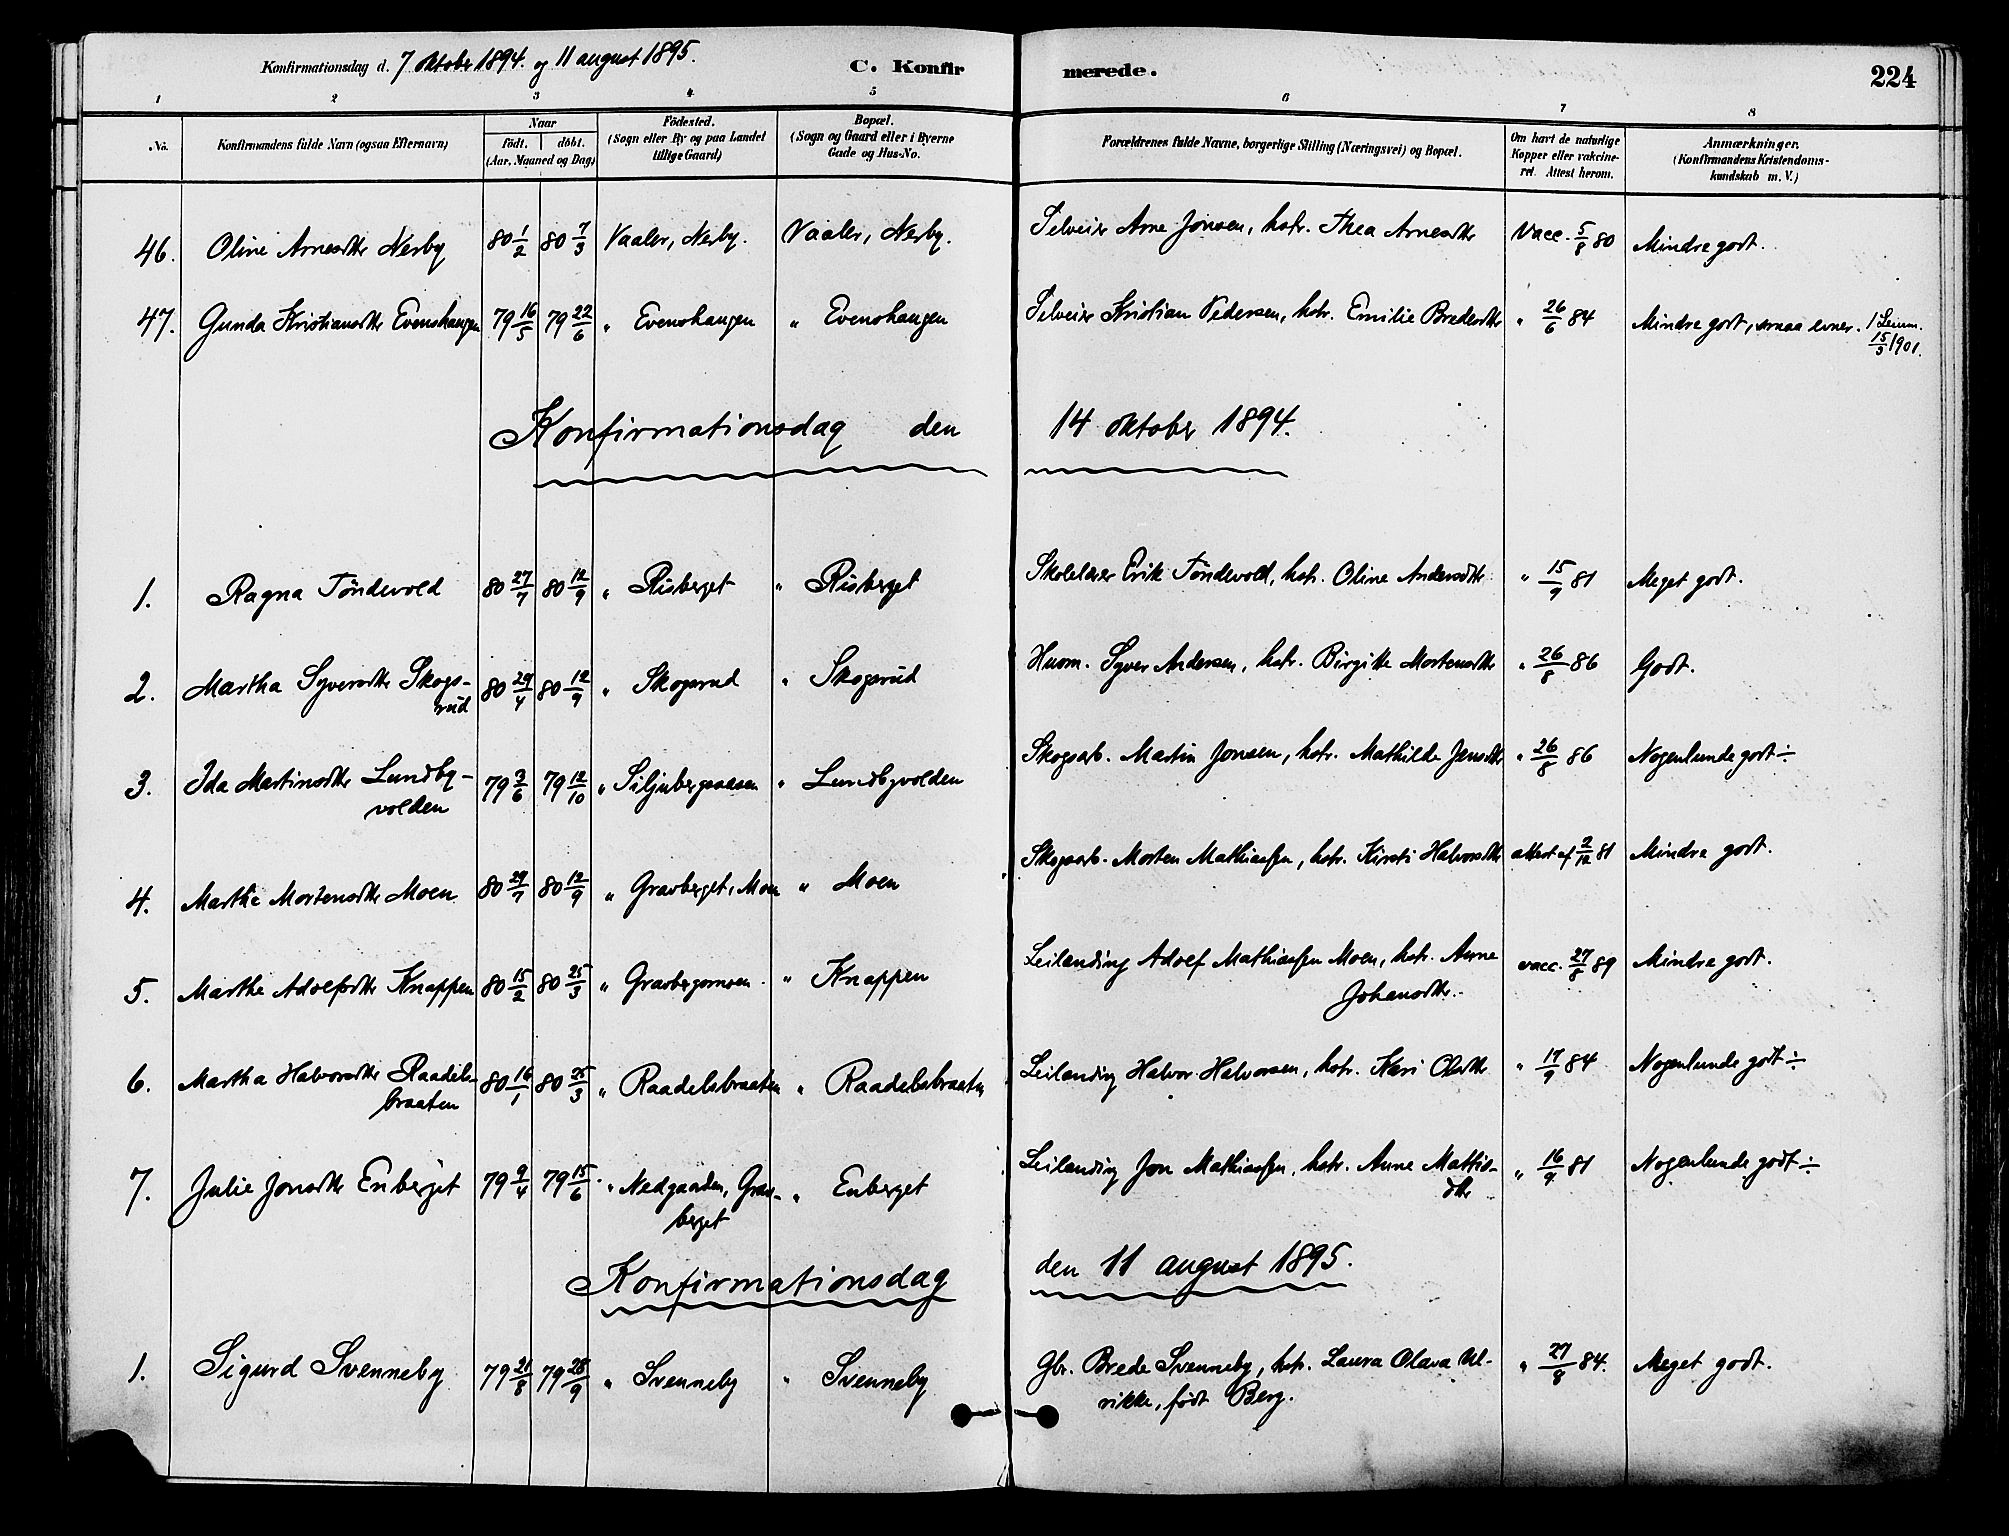 Konfirmationsdag d. 7 oktober 1894. og 11 august 1895.
C. Konfirmerede.
224
1 2 3 4 5 6 7 8
No.
Konfirmandens fulde Navn (ogsaa Efternavn)
Naar
födt. döbt.
(Aar, Maaned og Dag)
Födested.
(Sogn eller By og paa Landet
tillige Gaard)
Bopæl.
(Sogn og Gaard eller i Byerne
Gade og Hus-No.
Forældrenes fulde Navne, borgerlige Stilling (Næringsvei) og Bopæl.
Om havt de naturlige
Kopper eller vakcine-
ret. Attest herom.
Anmærkninger.
(Konfirmandens Kristendoms-
kundskab m. V.)
46. Oline Arnesdtr Nerby 80 1/2 80 7/3 Vaaler, Nerby. Vaaler, Nerby. Selveier Arne Jonsen, hstr. Thea Arnesdtr Vacc. 5/8 80 Mindre godt.
47. Gunda Kristiansdtr Evenshaugen 79 16/5 79 22/6 " Evenshaugen " Evenshaugen Selveier Kristian Pedersen, hstr. Emilie Bredesdtr " 26/6 84 Mindre godt, smaa evner.
15/3 1901.
Konfirmationsdag den 14 oktober 1894.
1. Ragna Töndevold 80 27/7 80 12/9 " Risberget " Risberget Skolelærer Erik Töndevold, hstr. Oline Andersdtr " 15/9 81 Meget godt.
2. Martha Syversdtr Skogs-
rud 80 29/4 80 12/9 " Skogsrud " Skogsrud Husm. Syver Andersen, hstr. Birgitte Mortensdtr " 26/8 86 Godt.
3. Ida Martinsdtr Lundby-
volden 79 3/6 79 12/10 " Siljubergsaasen " Lundbyvolden Skogsarb. Martin Jonsen, hstr. Mathilde Jensdtr " 26/8 86 Nogenlunde godt ÷
4. Marthe Mortensdtr Moen 80 29/7 80 12/9 " Gravberget, Moen " Moen Skogsarb. Morten Mathiassen, hstr. Kirsti Halvorsdtr attest af 2/12 81 Mindre godt.
5. Marthe Adolfsdtr Knappen 80 15/2 80 25/3 " Gravbergsmoen " Knappen Leilænding Adolf Mathiassen Moen, hstr. Anne
Johansdtr. vacc. 27/8 89 Mindre godt.
6. Martha Halvorsdtr Raadels-
braaten 80 16/1 80 25/3 " Raadelsbraaten " Raadelsbraaten Leilænding Halvor Halvorsen, hstr. Kari Olsdtr " 17/9 84 Nogenlunde godt ÷
7. Julie Jonsdtr Enberget 79 9/4 79 15/6 " Nedgaarden, Grav-
berget " Enberget Leilænding Jon Mathiassen, hstr. Anne Mattis-
dtr " 16/9 81 Nogenlunde godt ÷
Konfirmationsdag den 11 august 1895.
1. Sigurd Svenneby 79 21/8 79 28/9 " Svenneby " Svenneby Gbr. Brede Svenneby, hstr. Laura Olava Ul-
rikke, født Berg. " 27/8 84. Meget godt.